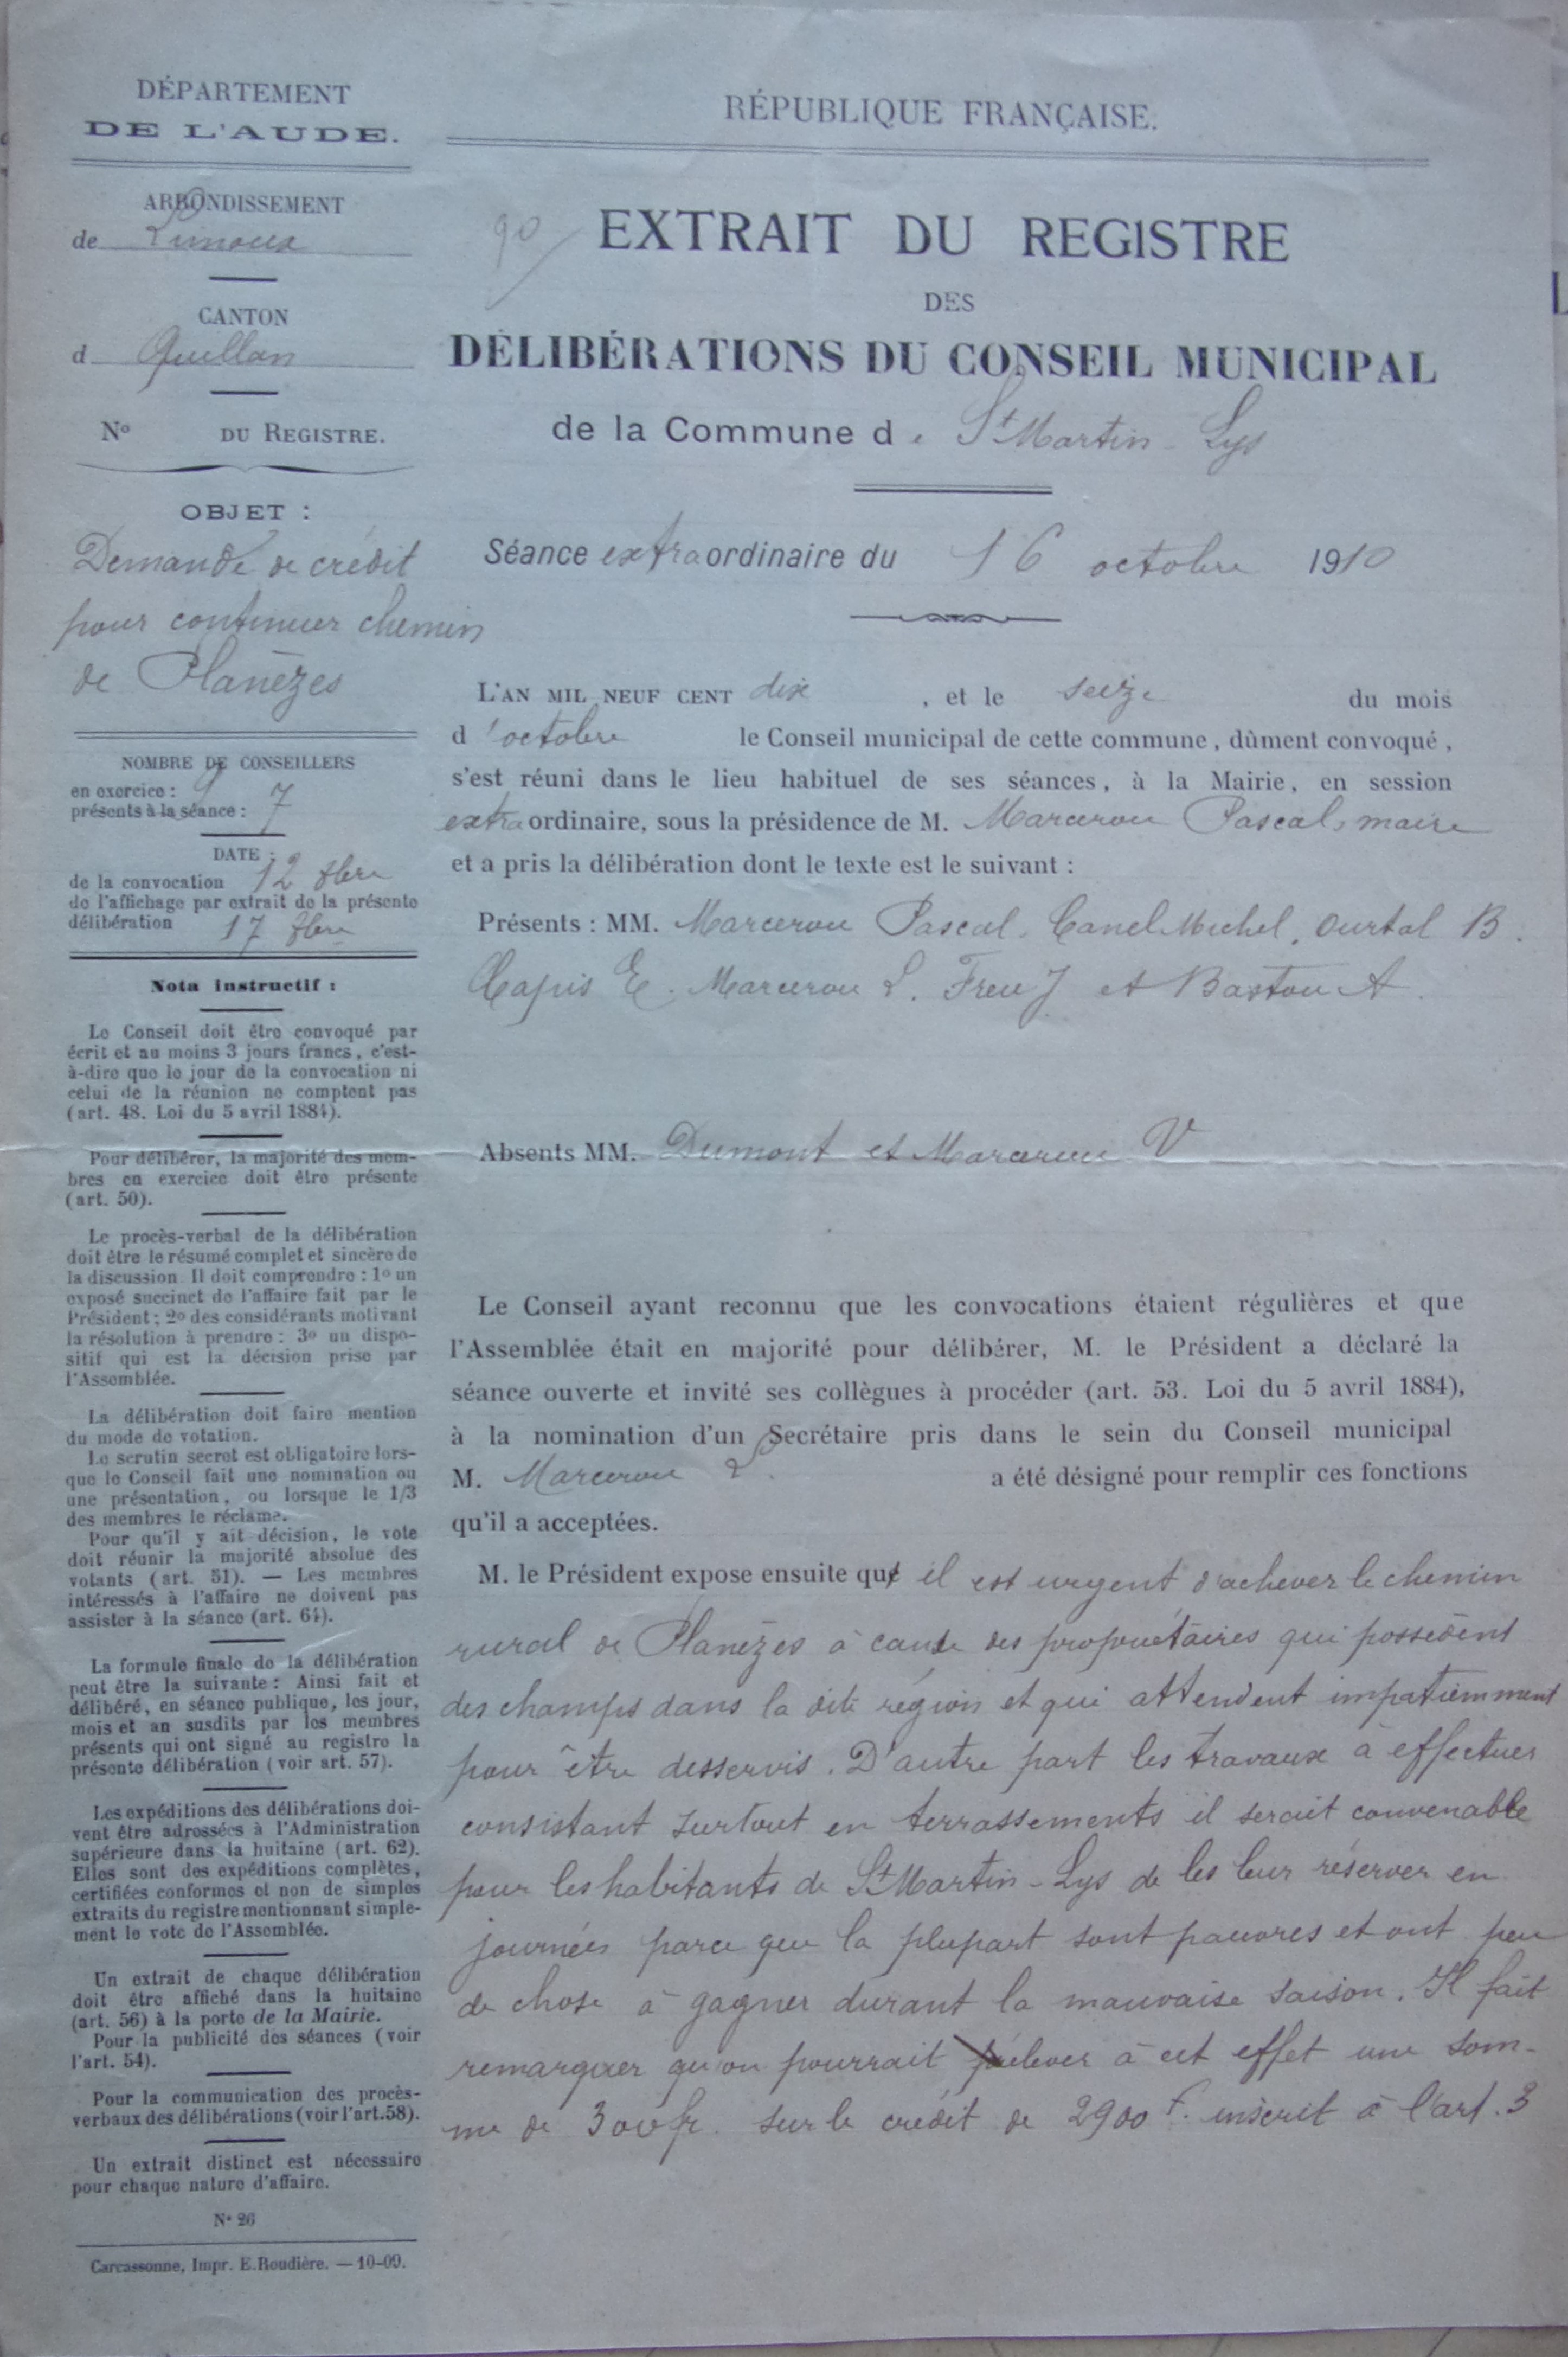 DÉPARTEMENT
DE L'AUDE.
ARRONDISSEMENT
de Limoux
CANTON
d Quillan
No DU REGISTRE.
OBJET :
Demande de crédit
pour continuer chemin
de Planèzes
NOMBRE DE CONSEILLERS
en exercice : 9
présents à la séance : 7
DATE :
de la convocation 12 8bre
de l'affichage par extrait de la présente
délibération 17 8bre
Nota instructif :
Le Conseil doit être convoqué par
écrit et au moins 3 jours francs, c'est-
à-dire que le jour de la convocation ni
celui de la réunion ne comptent pas
(art. 48. Loi du 5 avril 1884).
Pour délibérer, la majorité des mem-
bres en exercice doit être présente
(art. 50).
Le procès-verbal de la délibération
doit être le résumé complet et sincère de
la discussion. Il doit comprendre : 1o un
exposé succinct de l'affaire fait par le
Président ; 2o des considérants motivant
la résolution à prendre : 3o un dispo-
sitif qui est la décision prise par
l'Assemblée.
La délibération doit faire mention
du mode de votation.
Le scrutin secret est obligatoire lors-
que le Conseil fait une nomination ou
une présentation, ou lorsque le 1/3
des membres le réclame.
Pour qu'il y ait décision, le vote
doit réunir la majorité absolue des
votants (art. 51). — Les membres
intéressés à l'affaire ne doivent pas
assister à la séance (art. 64).
La formule finale de la délibération
peut être la suivante : Ainsi fait et
délibéré, en séance publique, les jour,
mois et an susdits par les membres
présents qui ont signé au registre la
présente délibération (voir art. 57).
Les expéditions des délibérations doi-
vent être adressées à l'Administration
supérieure dans la huitaine (art. 62).
Elles sont des expéditions complètes,
certifiées conformes et non de simples
extraits du registre mentionnant simple-
ment le vote de l'Assemblée.
Un extrait de chaque délibération
doit être affiché dans la huitaine
(art. 56) à la porte de la Mairie.
Pour la publicité des séances (voir
l'art. 54).
Pour la communication des procès-
verbaux des délibérations (voir l'art. 58).
Un extrait distinct est nécessaire
pour chaque nature d'affaire.
No 26
Carcassonne, Impr. E. Roudière. — 10-09.
RÉPUBLIQUE FRANÇAISE.
90
EXTRAIT DU REGISTRE
DES
DÉLIBÉRATIONS DU CONSEIL MUNICIPAL
de la Commune de St Martin-Lys
Séance extraordinaire du 16 octobre 1910
L'AN MIL NEUF CENT dix , et le seize du mois
d'octobre le Conseil municipal de cette commune, dûment convoqué,
s'est réuni dans le lieu habituel de ses séances, à la Mairie, en session
extraordinaire, sous la présidence de M. Marcerou Pascal, maire
et a pris la délibération dont le texte est le suivant :
Présents : MM. Marcerou Pascal, Canel Michel, Ourtal B.
Capis E. Marcerou L. Freu J et Bastou A.
Absents MM. Dumont et Marcerou V
Le Conseil ayant reconnu que les convocations étaient régulières et que
l'Assemblée était en majorité pour délibérer, M. le Président a déclaré la
séance ouverte et invité ses collègues à procéder (art. 53. Loi du 5 avril 1884),
à la nomination d'un Secrétaire pris dans le sein du Conseil municipal
M. Marcerou L. a été désigné pour remplir ces fonctions
qu'il a acceptées.
M. le Président expose ensuite qu'il est urgent d'achever le chemin
rural de Planèzes à cause des propriétaires qui possèdent
des champs dans la dite région et qui attendent impatiemment
pour être desservis. D'autre part les travaux à effectuer
consistant surtout en terrassements il serait convenable
pour les habitants de St Martin-Lys de les leur réserver en
journées parce que la plupart sont pauvres et ont peu
de chose à gagner durant la mauvaise saison. Il fait
remarquer qu'on pourrait prélever à cet effet une som-
me de 300 fr. sur le crédit de 2900 f. inscrit à l'art. 3